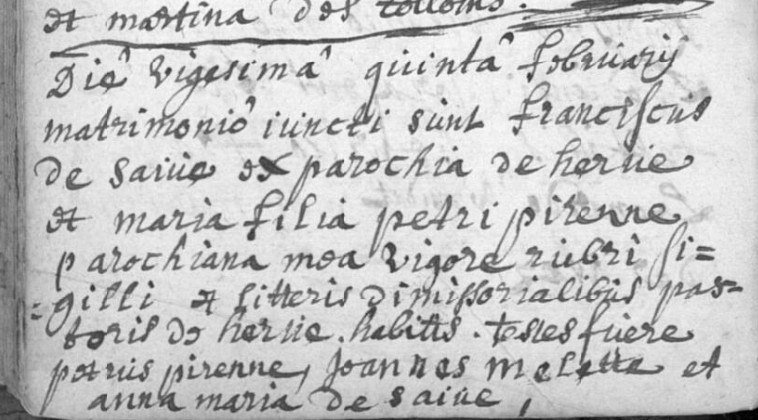 et martina des
Die vigesima quinta februarij
matrimonio iuncti sunt franciscus
de saiue ex parochia de herue
et maria filia petri pirenne
parochiana mea vigore rubri si=
=gilli et litteris dimissorialibus pas=
toris de herue. habitis. testes fuere
petrus pirenne, Joannes melette et
anna maria de saiue,